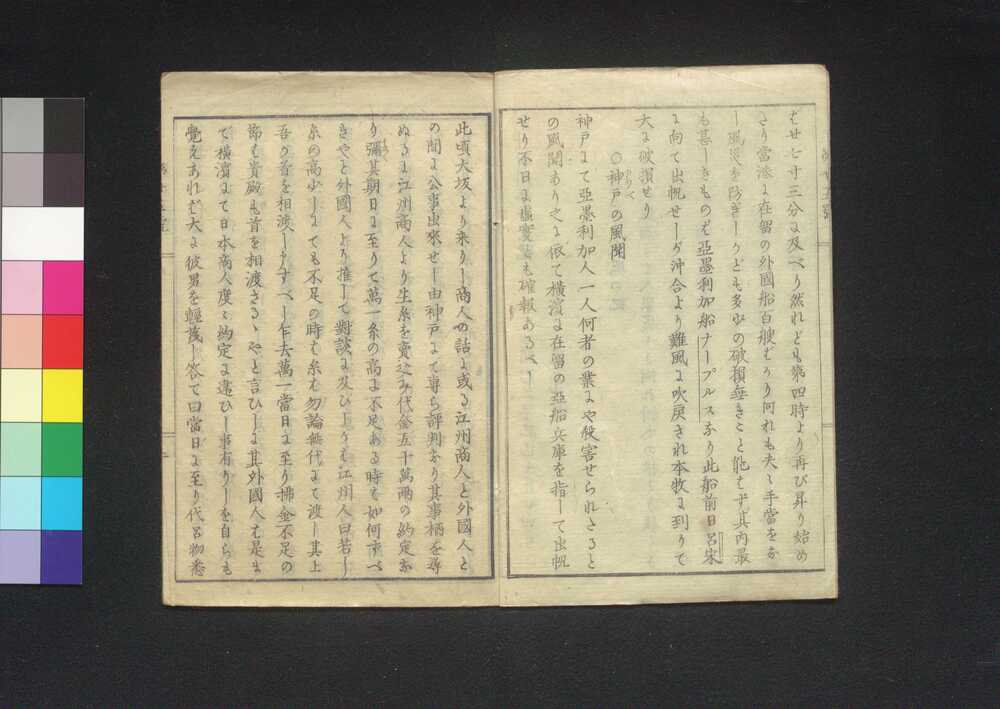 むせ七寸三分に及べり然れども第四時より再び昇り始め
たり當港に在留の外國船百艘ばかり何れも夫〻手當をな
し風災を防ぎしかども多少の破損無きこと能はず其内最
も甚しきものは亞墨利加船ナープルスなり此船前日呂宋
に向て出帆せしが沖合より難風に吹戻され本牧に到りて
大に破損せり
○神戸の風聞
神戸にて亞墨利加人一人何者の業にや殺害せられたると
の風聞あり之に依て横濱に在留の亞船兵庫を指して出帆
せり不日に虚實とも確報あるべし
此頃大坂より来りし商人の話に或る江州商人と外國人と
の間に公事出來せし由神戸にて専ら評判なり其事柄を尋
ぬるに江州商人より生糸を賣込み代金五十萬兩の約定な
り彌其期日に至りて萬一糸の高に不足ある時は如何すべ
きやと外國人より推して對談に及びしかば江州人曰若し
糸の高少しにても不足の時は糸は勿論無代にて渡し其上
吾が首を相渡し申すべし乍去萬一當日に至り拂金不足の
節は貴殿も首を相渡さるゝやと言ひしに其外國人は是ま
で横濱にて日本商人度〻約定に違ひし事有りしを自らも
覺えあれば大に彼男を輕蔑し答て曰當日に至り代呂物悉